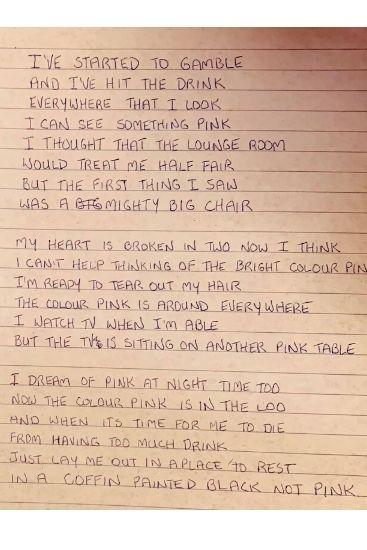 I'VE STARTED TO GAMBLE
AND I'VE HIT THE DRINK
EVERYWHERE THAT I LOOK
I CAN SEE SOMETHING PINK
I THOUGHT THAT THE LOUNGE ROOM
WOULD TREAT ME HALF FAIR
BUT THE FIRST THING I SAW
WAS A MIGHTY BIG CHAIR
MY HEART IS BROKEN IN TWO NOW I THINK
I CAN'T HELP THINKING OF THE BRIGHT COLOUR PIN
I'M READY TO TEAR OUT MY HAIR
THE COLOUR PINK IS AROUND EVERYWHERE
I WATCH TV WHEN I'M ABLE
BUT THE TV IS SITTING ON ANOTHER PINK TABLE
I DREAM OF PINK AT NIGHT TIME TOO
NOW THE COLOUR PINK IS IN THE LOO
AND WHEN ITS TIME FOR ME TO DIE
FROM HAVING TOO MUCH DRINK
JUST LAY ME OUT IN A PLACE TO REST
IN A COFFIN PAINTED BLACK NOT PINK.